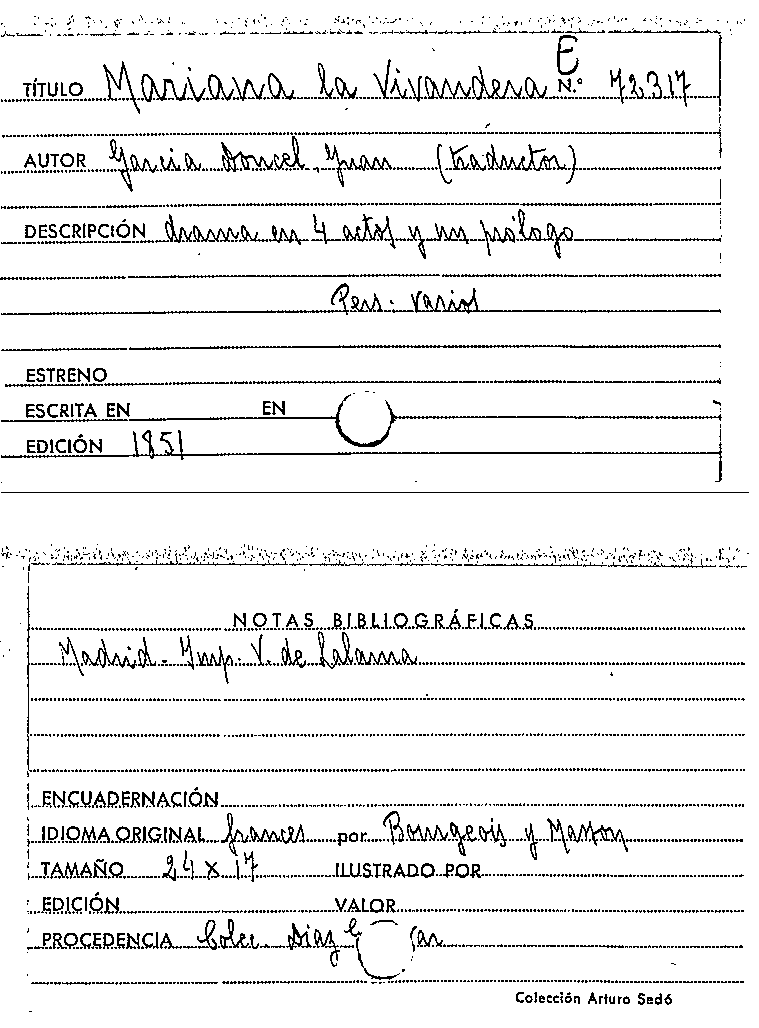 E
TÍTULO Mariana la Vivandera N.º 72317
AUTOR Garcia Doncel, Juan (traductor)
DESCRIPCIÓN drama en 4 actos y un prólogo
Pers: varios
ESTRENO
ESCRITA EN EN
EDICIÓN 1851
NOTAS BIBLIOGRÁFICAS
Madrid - Imp. V. de Lalama
ENCUADERNACIÓN
IDIOMA ORIGINAL frances por Bourgeois y Masson
TAMAÑO 24 x 17 ILUSTRADO POR
EDICIÓN VALOR
PROCEDENCIA Colec. Diaz
Colección Arturo Sedó